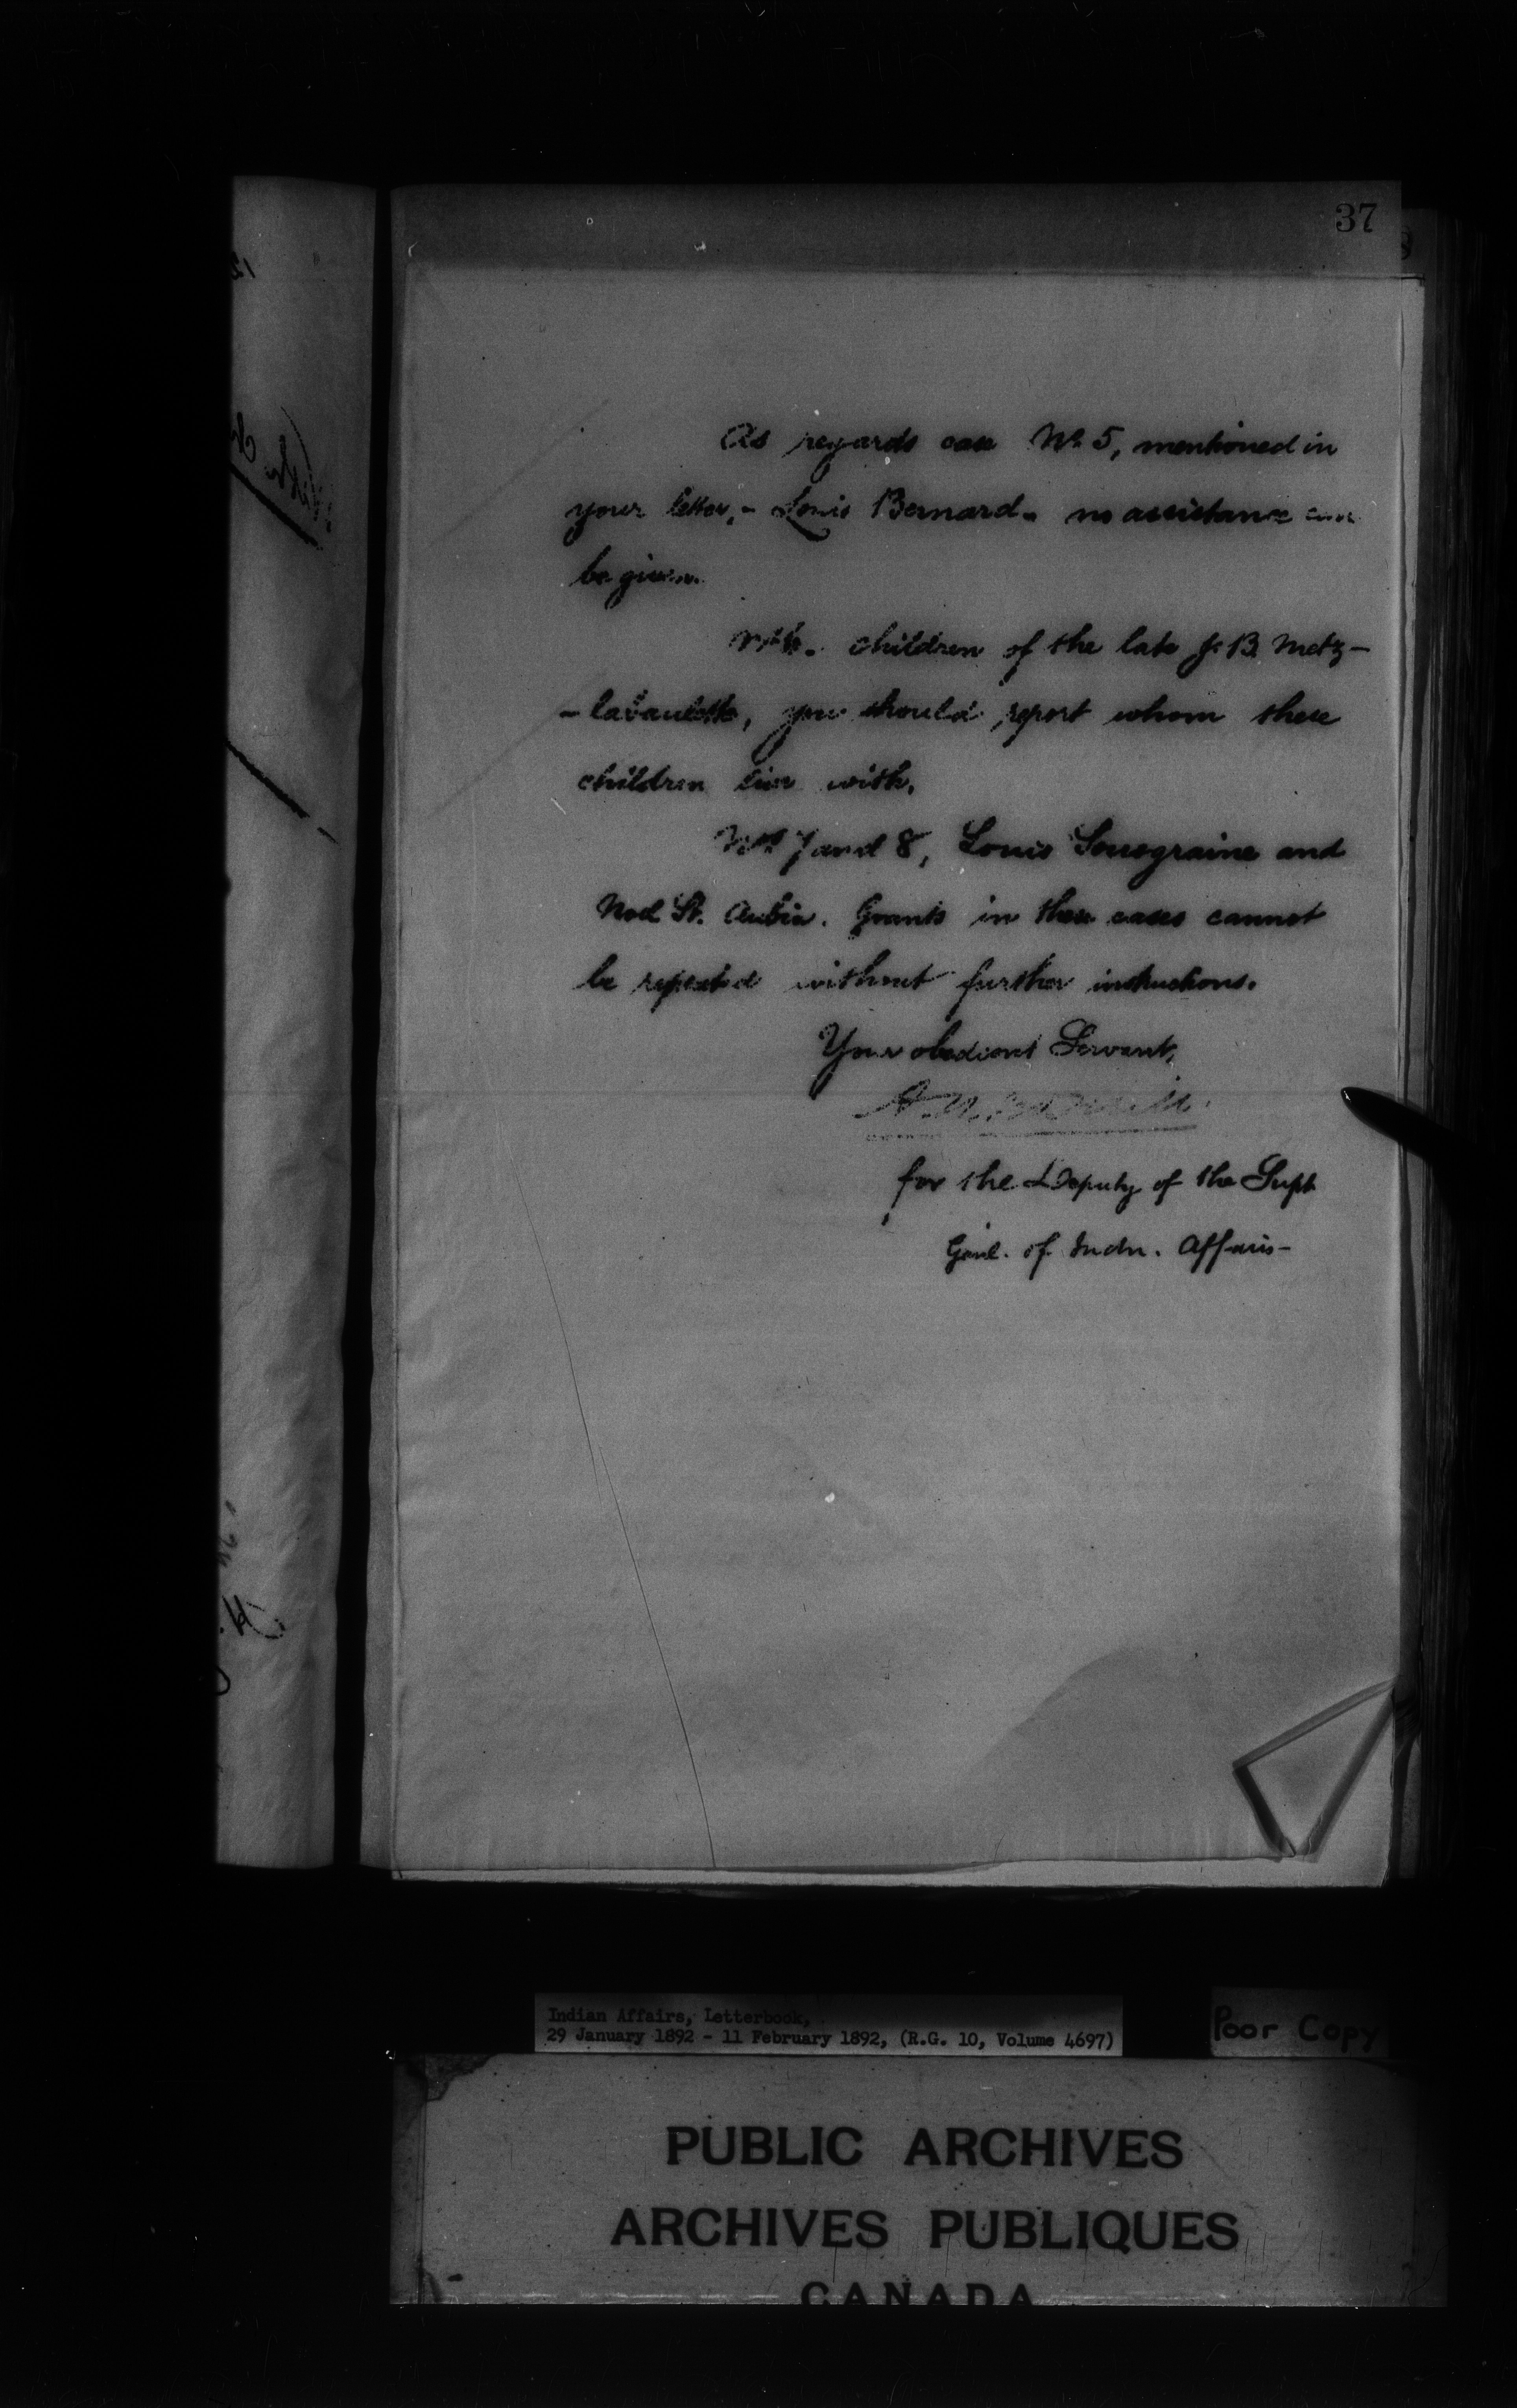 37
As regards case No. 5, mentioned in
your letter, - Louis Bernard - no assistance can
be given.
children of the late J. B. Metz-
you should report whom these
children live with.
Nos 7 and 8, Louis and
Noel St. Aubin. Grants in these cases cannot
be repeated without further instructions.
Your obedient Servant,
for the Deputy of the Supt
Genl. of Indn. Affairs-
Indian Affairs, Letterbook,
29 January 1892 - 11 February 1892, (R.G. 10, Volume 4697)
Poor Copy
PUBLIC ARCHIVES
ARCHIVES PUBLIQUES
CANADA